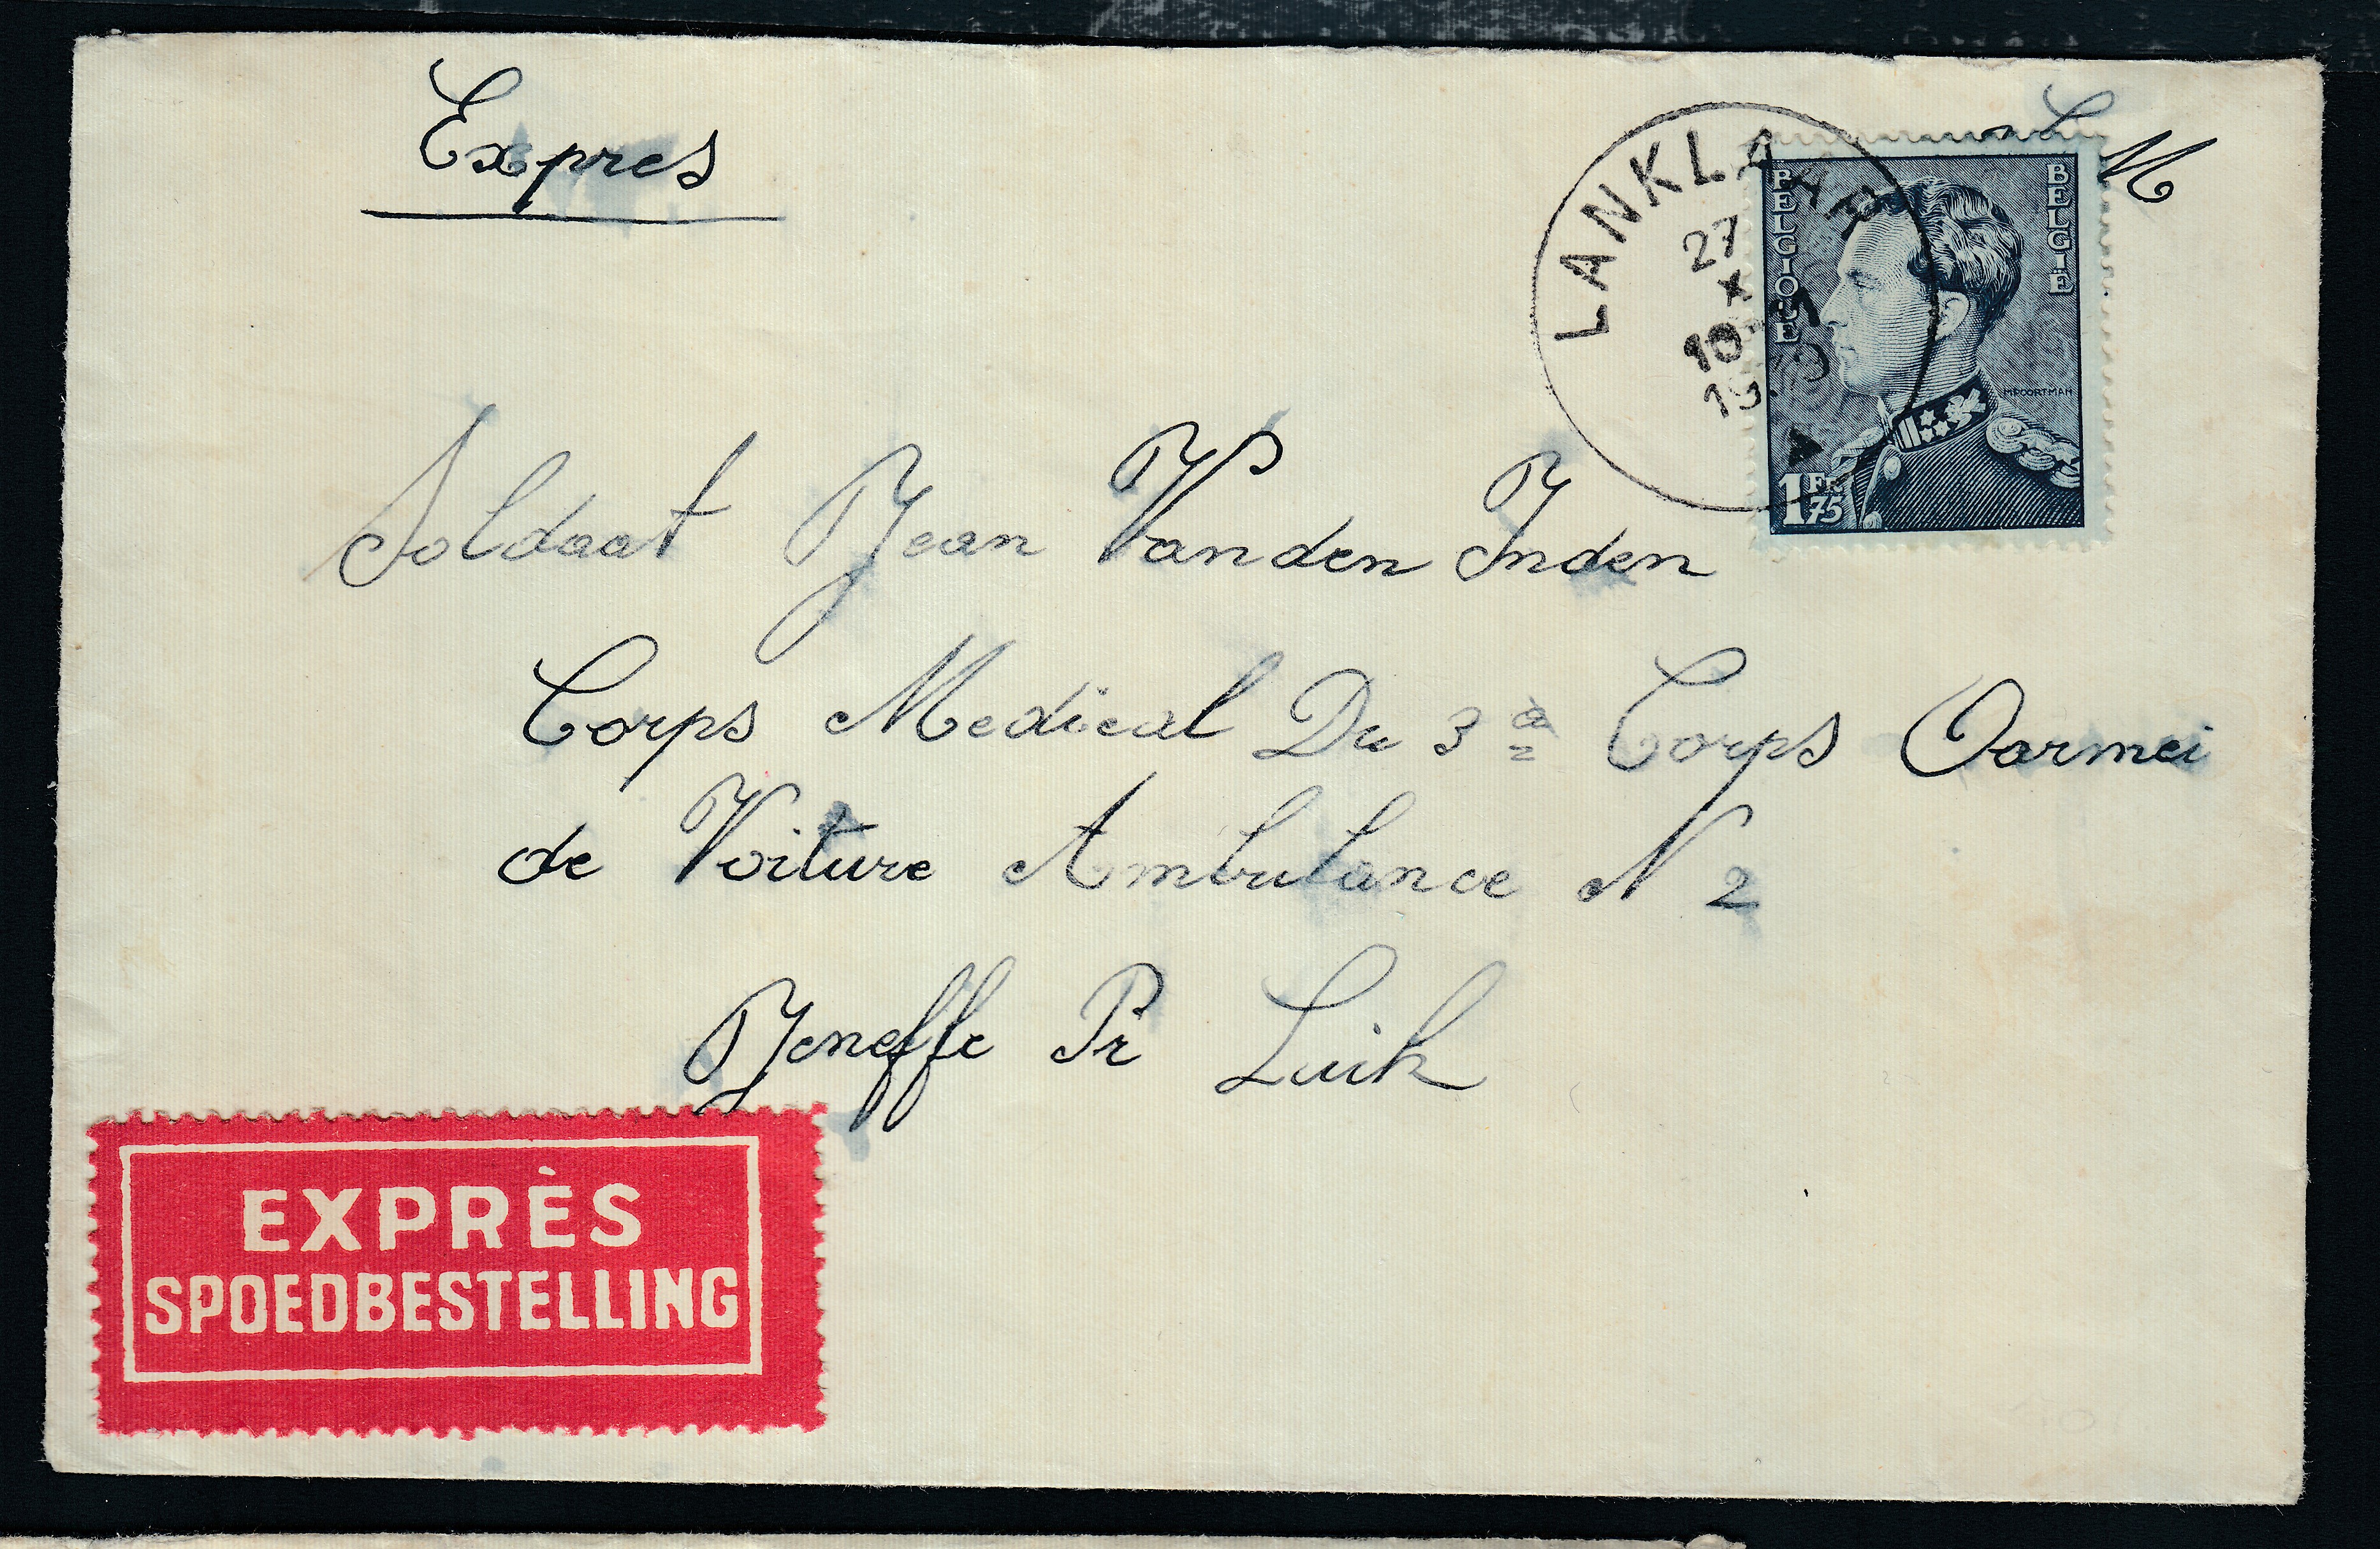 Expres
S M
LANKLAAR
27
X
10-11
19
BELGIQUE
BELGIË
M.POORTMAN
1 FR 75
Soldaat Jean Vanden Ynden
Corps Medical Du 3 Corps Oarmei
de Voiture Ambulance N 2
Jeneffe Pr Luik
EXPRÈS
SPOEDBESTELLING